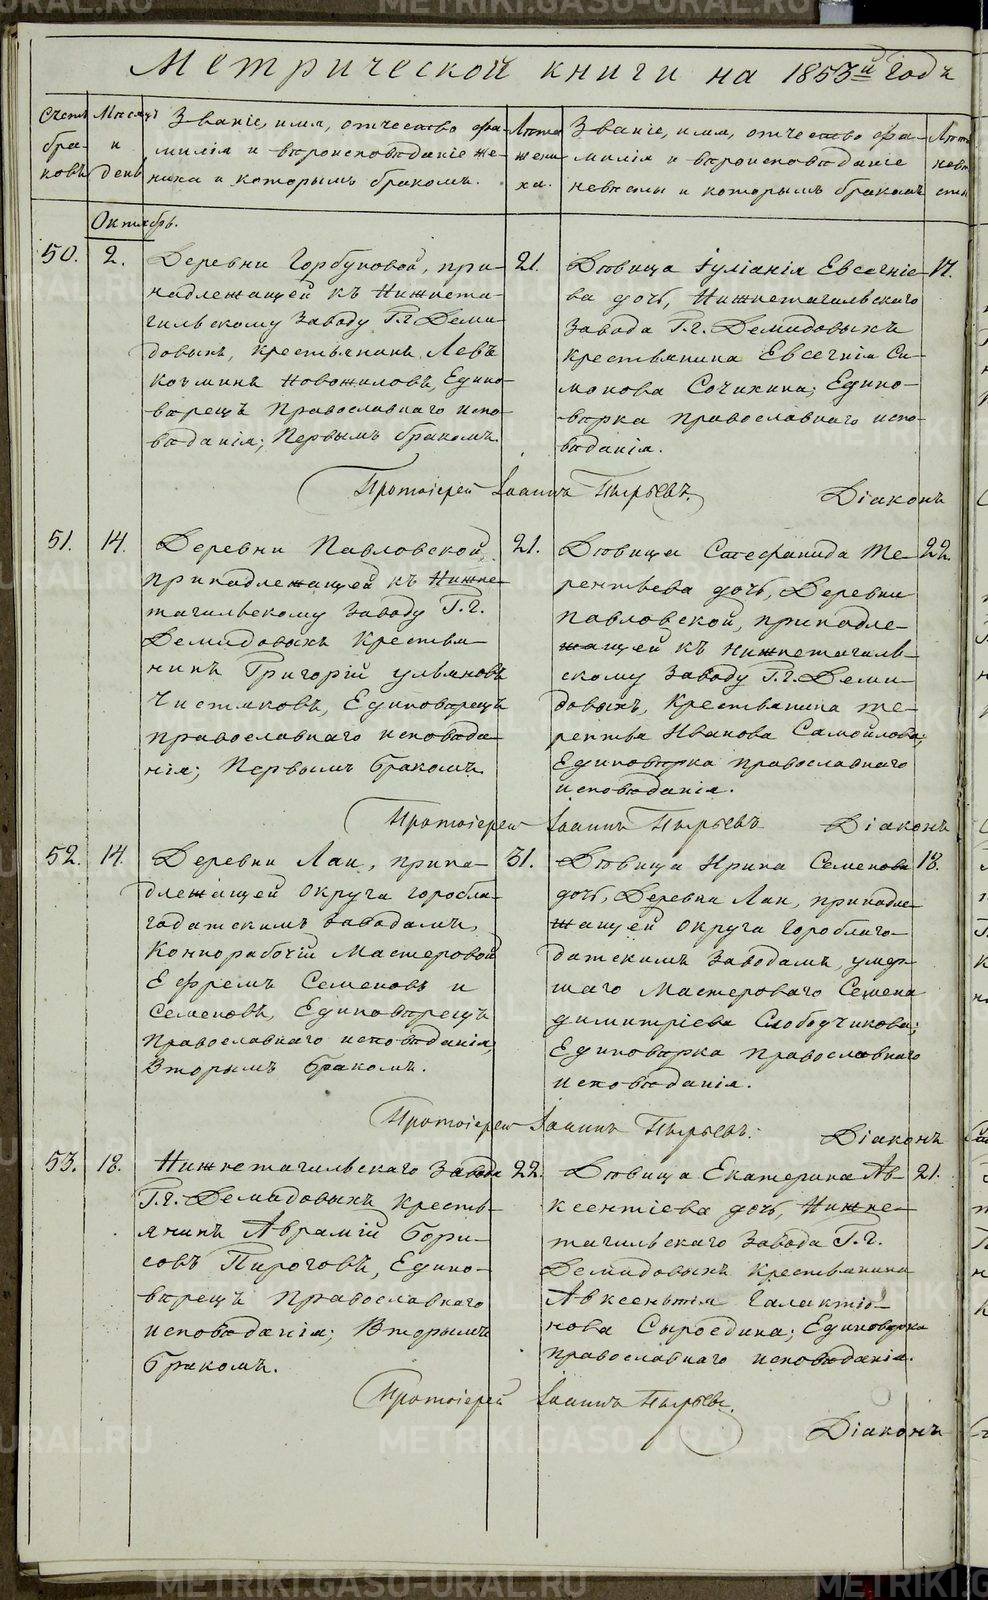 Метрической книги на 1853й годъ
Счетъ бра- ковъ
Мѣсяцъ и день
Званіе, имя, отчество фа-
милія и вѣроисповѣданіе же-
ниха и которымъ бракомъ.
Лѣта жени- ха.
Званіе, имя, отчество фа-
милія и вѣроисповѣданіе
невѣсты и которымъ бракомъ
Лѣта невѣ- сты
Октябрь.
50. 2.
Деревни Горбуновой, при-
надлежащей къ Нижнета-
гильскому Заводу Г.г. Деми-
довыхъ, крестьянинъ Левъ
Козминъ Новожиловъ, Едино-
вѣрецъ православнаго испо-
вѣданія; Первымъ бракомъ.
21.
Дѣвица Іуліанія Евсегніе-
ва дочь, Нижнетагильскаго
Завода Г.г. Демидовыхъ
крестьянина Евсегнія Си-
монова Сочихина; Едино-
вѣрка православнаго испо-
вѣданія.
17.
Протоіерей Іоаннъ Пырьевъ.
Діаконъ
51. 14.
Деревни Павловской,
принадлежащей къ Нижне-
тагильскому Заводу Г.г.
Демидовыхъ Крестья-
нинъ Григорій Ульяновъ
Чистяковъ, Единовѣрецъ
православнаго исповѣда-
нія; Первымъ бракомъ.
21.
Дѣвица Стефанида Те-
рентьева дочь, Деревни
Павловской, принадле-
жащей къ Нижнетагиль-
скому Заводу Г.г. Деми-
довыхъ, Крестьянина Те-
рентья Иванова Самойлова;
Единовѣрка православнаго
исповѣданія.
22.
Протоіерей Іоаннъ Пырьевъ
Діаконъ
52. 14.
Деревни Лаи, прина-
длежащей Округа горобла-
годатскимъ заводамъ,
Коннорабочій Мастеровой
Ефремъ Семеновъ и
Семеновъ, Единовѣрецъ
Православнаго исповѣданія,
Вторымъ бракомъ.
31.
Дѣвица Ирина Семенова
дочь, Деревни Лаи, принадле-
жащей Округа Гороблаго-
датскимъ Заводамъ, умер-
шаго Мастероваго Семена
Димитріева Слободчикова;
Единовѣрка православнаго
исповѣданія.
18.
Протоіерей Іоаннъ Пырьевъ.
Діаконъ
53. 18.
Нижнетагильскаго Завода
Г.г. Демидовыхъ Кресть-
янинъ Аврамій Бори-
совъ Пироговъ, Едино-
вѣрецъ Православнаго
исповѣданія; Вторымъ
бракомъ.
22.
Дѣвица Екатерина Ав-
ксентіева дочь, Нижне-
тагильскаго Завода Г.г.
Демидовыхъ Крестьянина
Авксентія Галактіо-
нова Сыроедина; Единовѣрка
православнаго исповѣданія.
21.
Протоіерей Іоаннъ Пырьевъ.
Діаконъ
METRIKI.GASO-URAL.RU